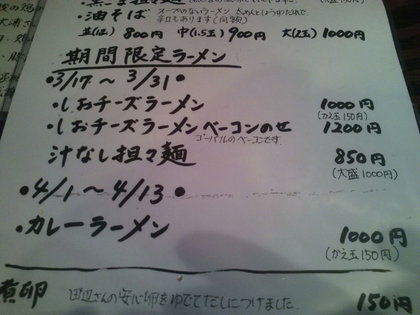 ・油そば スープのないラーメン 太めんとしょうゆだれで、
辛口もあります(同額)
並(1玉) 800円 中(1.5玉) 900円 大(2玉) 1000円
期間限定ラーメン
•3/17〜3/31•
・しおチーズラーメン 1000円
(かえ玉150円)
・しおチーズラーメン ベーコンのせ 1200円
ゴーバルのベーコンです。
汁なし担々麺 850円
(大盛1000円)
•4/1〜4/13•
・カレーラーメン 1000円
(かえ玉150円)
煮卵 田辺さんの安心卵をゆでてだしにつけました。 150円